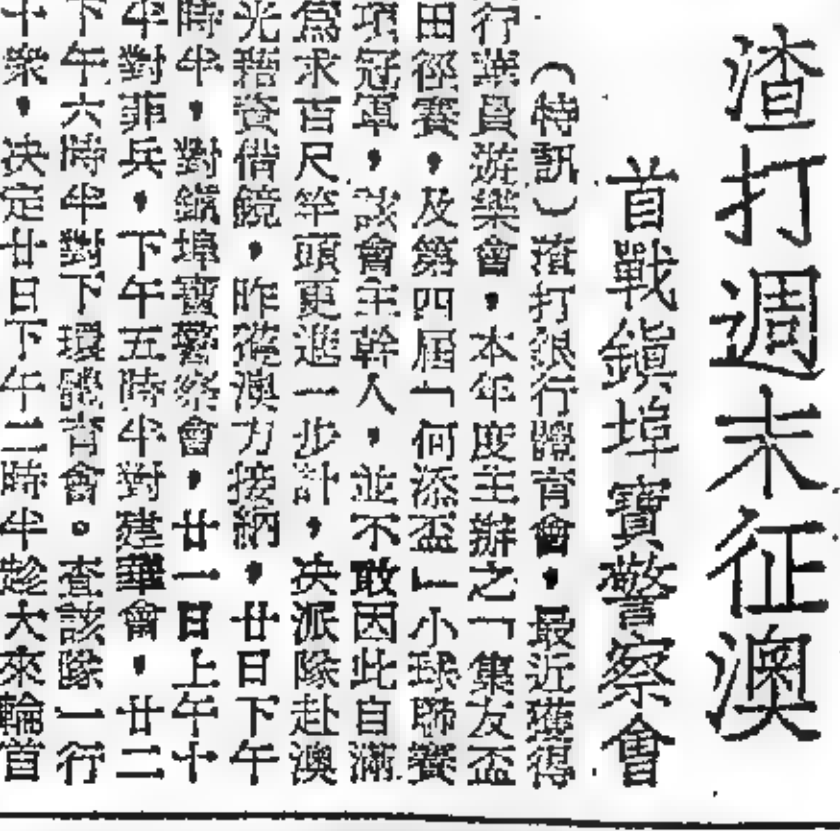 渣打週末征澳
首戰鎭埠寶警察會
(特訊)渣打銀行體育會,最近獲得
行業員遊樂會,本年度主辦之「集友盃
田徑賽,及第四屆「何添盃」小球聯賽
項冠軍,該會主幹人,並不敢因此自滿
爲求百尺竿頭更進一步計,决派隊赴澳
光藉資借鏡,昨從澳方接納,廿日下午
時半,對鎭埠寶警察會,廿一日上午十
半對菲兵,下午五時半對建華會,廿二
下午六時半對下環體育會。查該隊一行
十衆,决定廿日下午二時半趁大來輪首